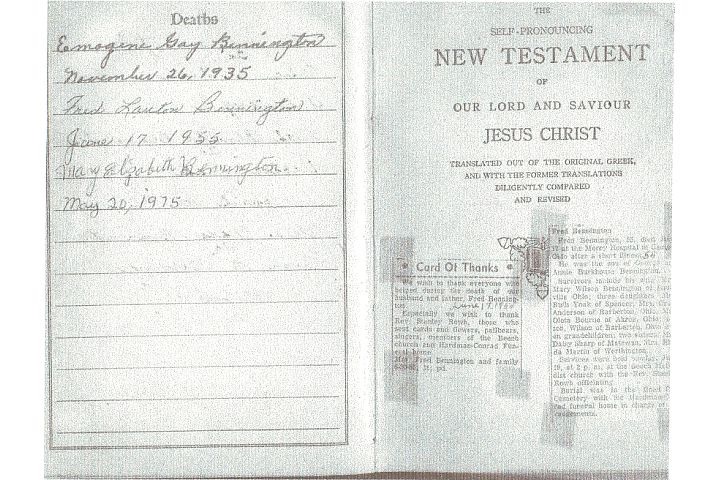 Deaths
Emogene Gay Bennington
November 26, 1935
Fred Lawton Bennington
June 17 1955
Mary Elizabeth Bennington
May 20, 1975
THE
SELF-PRONOUNCING
NEW TESTAMENT
OF
OUR LORD AND SAVIOUR
JESUS CHRIST
TRANSLATED OUT OF THE ORIGINAL GREEK,
AND WITH THE FORMER TRANSLATIONS
DILIGENTLY COMPARED
AND REVISED
Card Of Thanks
We wish to thank everyone who
helped during the death of our
husband and father, Fred Benning-
ton
June 17,
Especially we wish to thank
Rev. Stanley Rowb, those who
sent cards and flowers, pallbearers,
singers, members of the Beech
church and Hardman-Conrad Fun-
eral home.
Mrs. Fred Bennington and family
pd.
Fred Bennington
Fred Bennington, 55, died
17 at the Mercy Hospital in
Ohio after a short illness.
He was the son of
Annie Barkhouse Bennington.
Survivors include his wife,
Mary Wilson Bennington of
ville Ohio; three daughters
Ruth Yoak of Spencer, Mrs.
Anderson of Barberton, Ohio,
Oleta Bourne of Akron, Ohio,
son, Wilson of Barberton, Ohio
en grandchildren; two sisters,
Daisy Sharp of Matewan, Mrs.
da Martin of Worthington.
Services were held Sunday, June
19, at 2 p. m. at the Beech
dist church with the Rev.
Rowb officiating.
Burial was in the
Cemetery with the Hardman
rad funeral home in charge of
rangements.